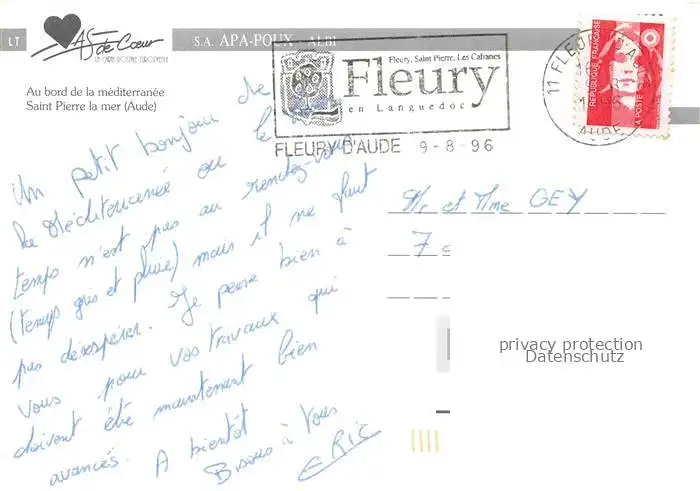 LT
AS de Cœur
LA CARTE POSTALE EUROPEENNE
S.A. APA-POUX - ALBI
Au bord de la méditerranée
Saint Pierre la mer (Aude)
Fleury, Saint Pierre, Les Cabanes
Fleury
en Languedoc
FLEURY D'AUDE 9-8-96
11 FLEURY D'AUDE
AUDE
REPUBLIQUE FRANÇAISE
LA POSTE
Un petit bonjour de
la Méditerranée où le
temps n'est pas au rendez-vous
(temps gris et pluie) mais il ne faut
pas désespérer. Je pense bien à
vous pour vos travaux qui
doivent être maintenant bien
avancés. A bientôt
Bisous à Vous
ERIC
Mr et Mme GEY
7
privacy protection
Datenschutz